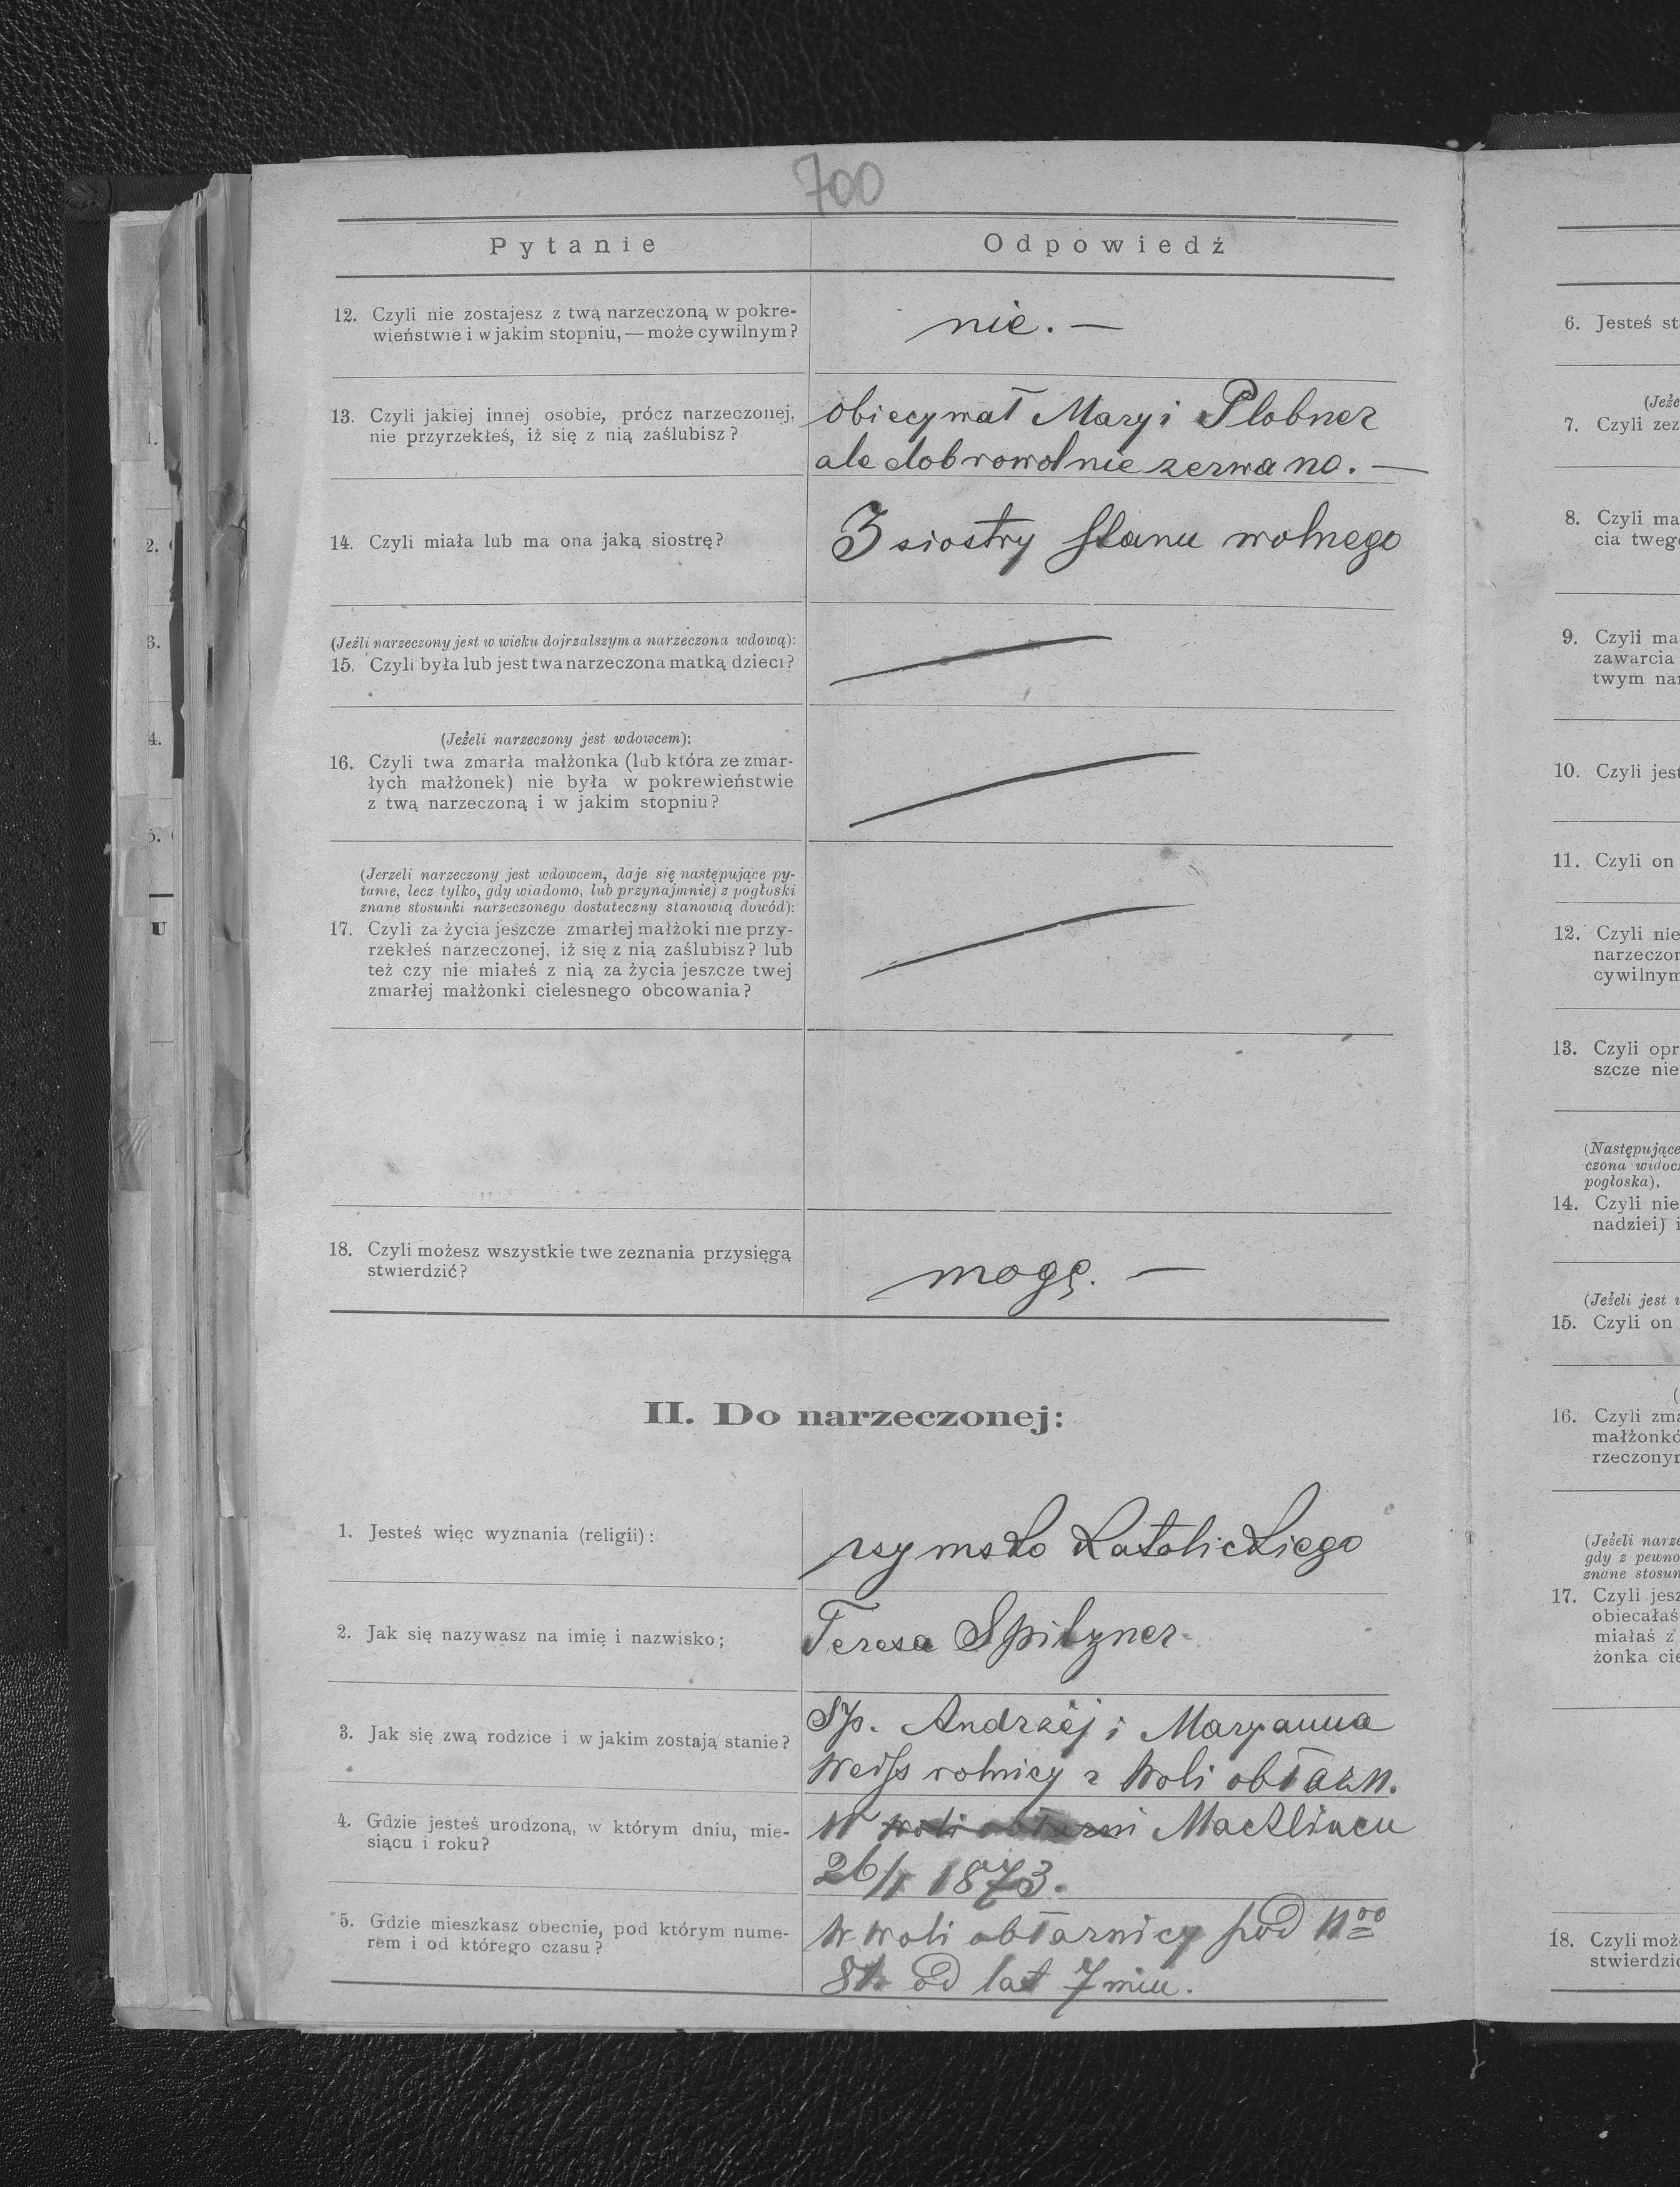 700
Pytanie
Odpowiedź
12. Czyli nie zostajesz z twą narzeczoną w pokre-
wieństwie i w jakim stopniu, — może cywilnym?
nie. —
13. Czyli jakiej innej osobie, prócz narzeczonej,
nie przyrzekłeś, iż się z nią zaślubisz?
obiecywał Maryi Plobner
ale dobrowolnie zerwano. —
14. Czyli miała lub ma ona jaką siostrę?
3 siostry stanu wolnego
(Jeźli narzeczony jest w wieku dojrzalszym a narzeczona wdową):
15. Czyli była lub jest twa narzeczona matką dzieci?
(Jeżeli narzeczony jest wdowcem):
16. Czyli twa zmarła małżonka (lub która ze zmar-
łych małżonek) nie była w pokrewieństwie
z twą narzeczoną i w jakim stopniu?
(Jerzeli narzeczony jest wdowcem, daje się następujące py-
tanie, lecz tylko, gdy wiadomo, lub przynajmniej z pogłoski
znane stosunki narzeczonego dostateczny stanowią dowód):
17. Czyli za życia jeszcze zmarłej małżoki nie przy-
rzekłeś narzeczonej, iż się z nią zaślubisz? lub
też czy nie miałeś z nią za życia jeszcze twej
zmarłej małżonki cielesnego obcowania?
18. Czyli możesz wszystkie twe zeznania przysięgą
stwierdzić?
mogę. —
II. Do narzeczonej:
1. Jesteś więc wyznania (religii):
rzymsko Katolickiego
2. Jak się nazywasz na imię i nazwisko;
Teresa Spitzner
3. Jak się zwą rodzice i w jakim zostają stanie?
Sp. Andrzej i Maryanna
Weiss rolnicy z Woli obłazn.
4. Gdzie jesteś urodzoną, w którym dniu, mie-
siącu i roku?
W woli obłazni Machlincu
26/1 1873.
5. Gdzie mieszkasz obecnie, pod którym nume-
rem i od którego czasu?
W woli obłaznicy pod Noo
od lat 7miu.
6. Jesteś st
(Jeże
7. Czyli zez
8. Czyli ma
cia tweg
9. Czyli ma
zawarcia
twym nar
10. Czyli jest
11. Czyli on
12. Czyli nie
narzeczon
cywilnym
13. Czyli opr
szcze nie
(Następujące
czona widoc
pogłoska).
14. Czyli nie
nadziei) i
(Jeżeli jest
15. Czyli on
16. Czyli zma
małżonkó
rzeczonym
(Jeżeli narze
gdy z pewno
znane stosun
17. Czyli jesz
obiecałaś
miałaś z
żonka cie
18. Czyli moż
stwierdzić